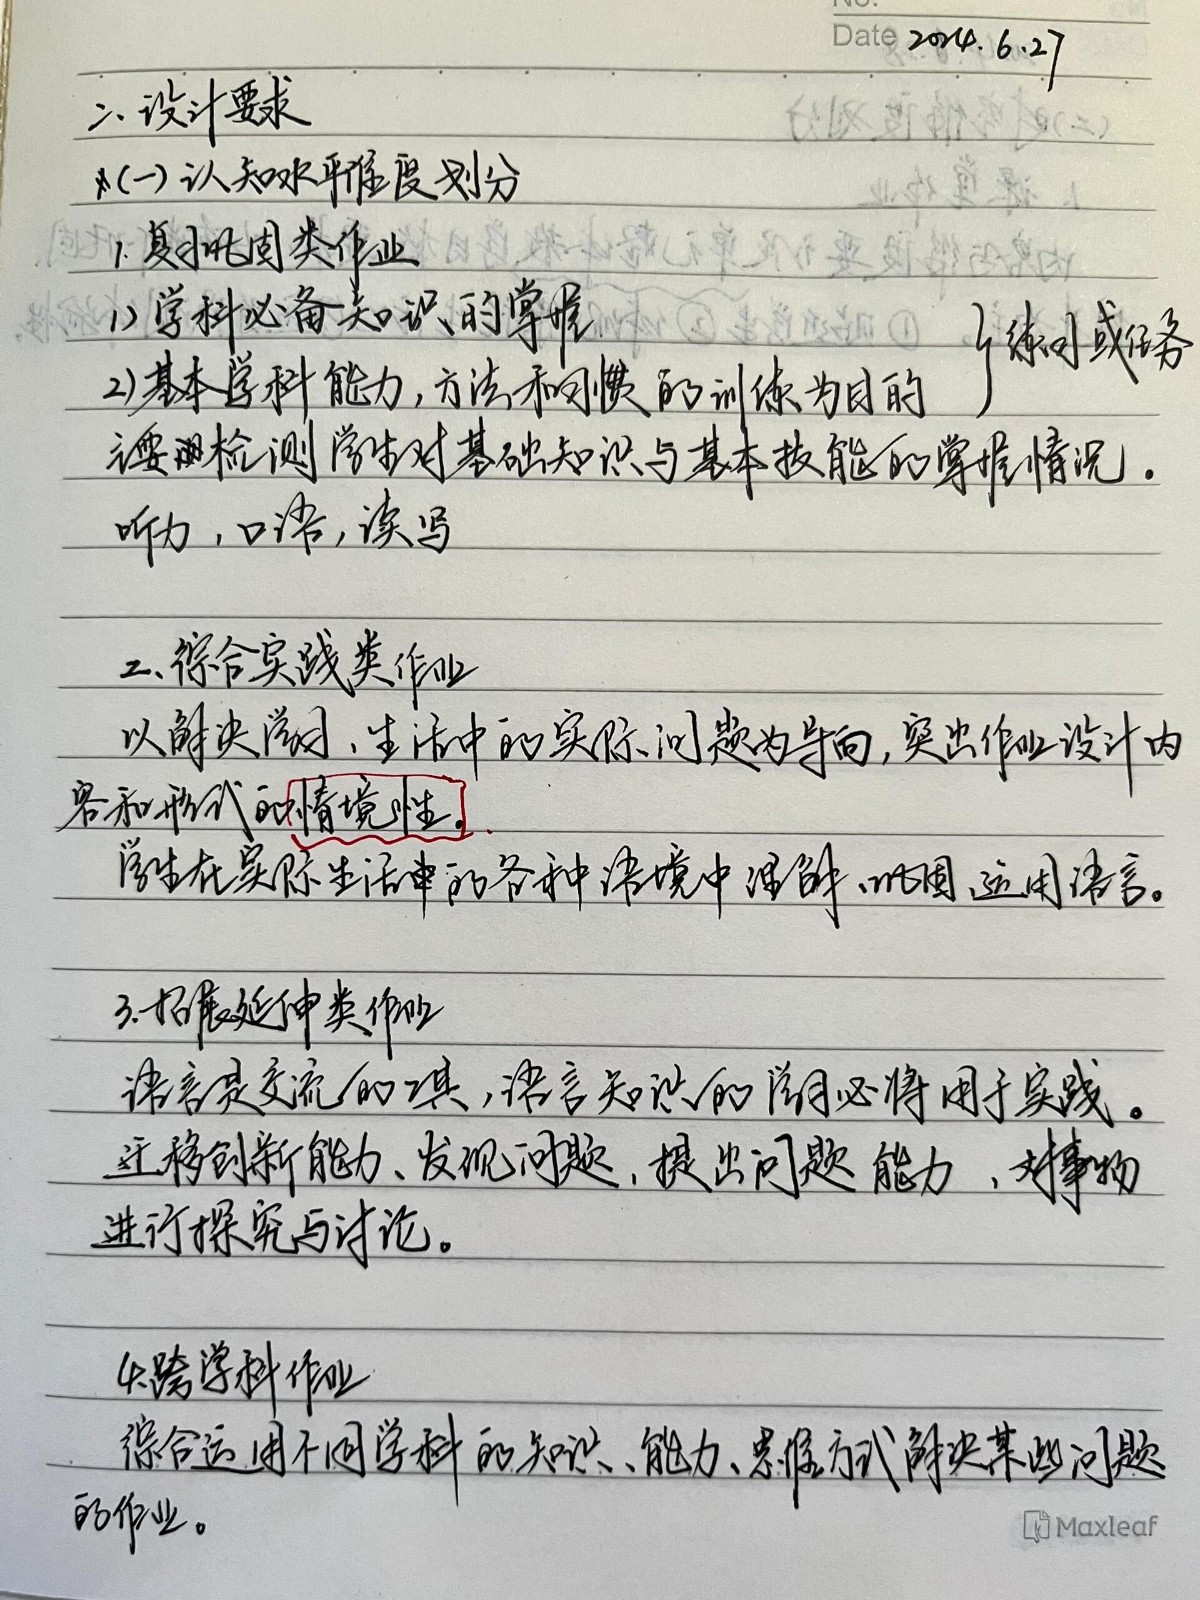 No.
Date 2024.6.27
二、设计要求
(一)认知水平维度划分
1.复习巩固类作业
1)学科必备知识的掌握
2)基本学科能力,方法和习惯的训练为目的
}练习或任务
主要检测学生对基础知识与基本技能的掌握情况。
听力,口语,读写
2、综合实践类作业
以解决学习、生活中的实际问题为导向,突出作业设计内
容和形式的情境性。
学生在实际生活中的各种语境中理解、巩固、运用语言。
3.拓展延伸类作业
语言是交流的工具,语言知识的学习必将用于实践。
迁移创新能力、发现问题、提出问题能力、对事物
进行探究与讨论。
4.跨学科作业
综合运用不同学科的知识、能力、思维方式解决某些问题
的作业。
Maxleaf